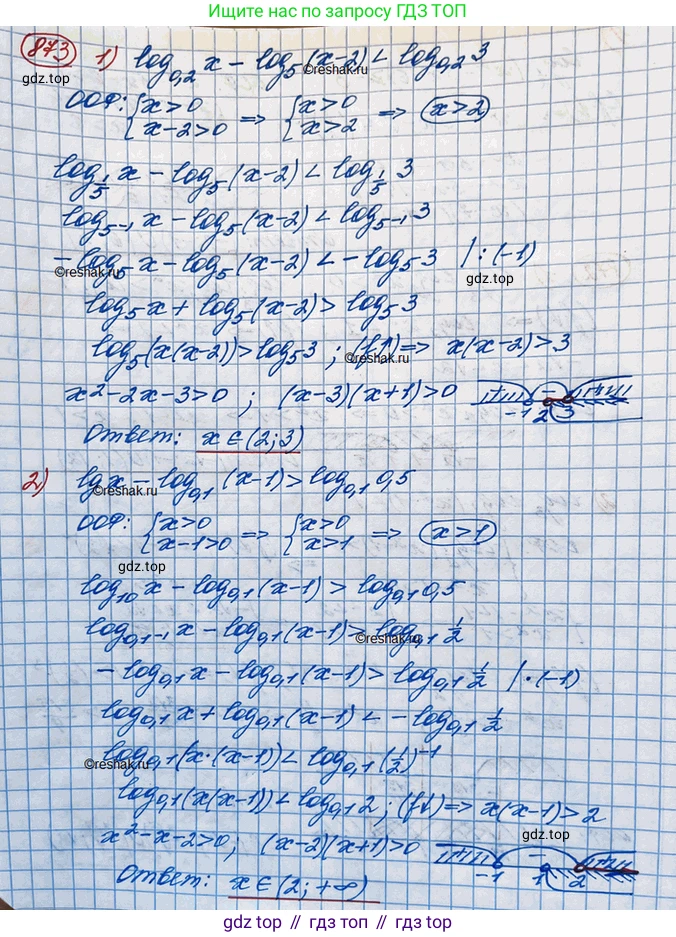 Ищите нас по запросу ГДЗ ТОП
873 1) log₀,₂ x − log₅(x−2) < log₀,₂ 3
©reshak.ru
gdz.top
ООФ: {x>0 x−2>0 => {x>0 x>2 => x>2
log_{1/5} x − log₅(x−2) < log_{1/5} 3
log_{5⁻¹} x − log₅(x−2) < log_{5⁻¹} 3
− log₅ x − log₅(x−2) < − log₅ 3 | :(−1)
©reshak.ru
gdz.top
log₅ x + log₅(x−2) > log₅ 3
log₅(x(x−2)) > log₅ 3 ; (f↑) => x(x−2) > 3
x² − 2x − 3 > 0 ; (x−3)(x+1) > 0 + − + −1 2 3
Ответ: x ∈ (2; 3)
2) lg x − log₀,₁ (x−1) > log₀,₁ 0,5
©reshak.ru
ООФ: {x>0 x−1>0 => {x>0 x>1 => x>1
gdz.top
log₁₀ x − log₀,₁(x−1) > log₀,₁ 0,5
log_{0,1⁻¹} x − log₀,₁(x−1) > log₀,₁ 1/2
©reshak.ru
− log₀,₁ x − log₀,₁(x−1) > log₀,₁ 1/2 | ·(−1)
log₀,₁ x + log₀,₁(x−1) < − log₀,₁ 1/2
log₀,₁(x·(x−1)) < log₀,₁ (1/2)⁻¹
©reshak.ru
log₀,₁(x(x−1)) < log₀,₁ 2 ; (f↓) => x(x−1) > 2
gdz.top
x² − x − 2 > 0; (x−2)(x+1) > 0 + − + −1 1 2
Ответ: x ∈ (2; +∞)
gdz.top // гдз.топ // gdz.top